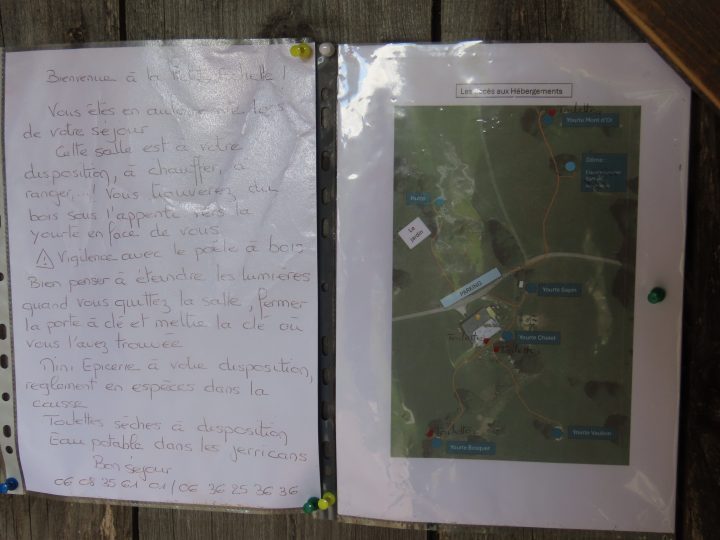 Bienvenue à la Echelle !
Vous êtes en autonomie lors
de votre séjour
Cette salle est à votre
disposition, à chauffer, à
ranger,...! Vous trouverez du
bois sous l'appenti vers la
yourte en face de vous
Vigilence avec le poêle à bois
Bien penser à éteindre les lumières
quand vous quittez la salle, fermer
la porte à clé et mettre la clé où
vous l'avez trouvée
Mini Epicerie à votre disposition,
règlement en espèces dans la
caisse
Toilettes sèches à disposition
Eau potable dans les jerricans
Bon séjour
06 08 35 61 01 / 06 36 25 36 36
Les accès aux Hébergements
Toilettes
Yourte Mont d'Or
Dôme
Le
jardin
PARKING
Yourte Sapin
Yourte Chalet
Toilettes
Toilettes
Toilettes
Yourte Bosquet
Yourte Vaulion